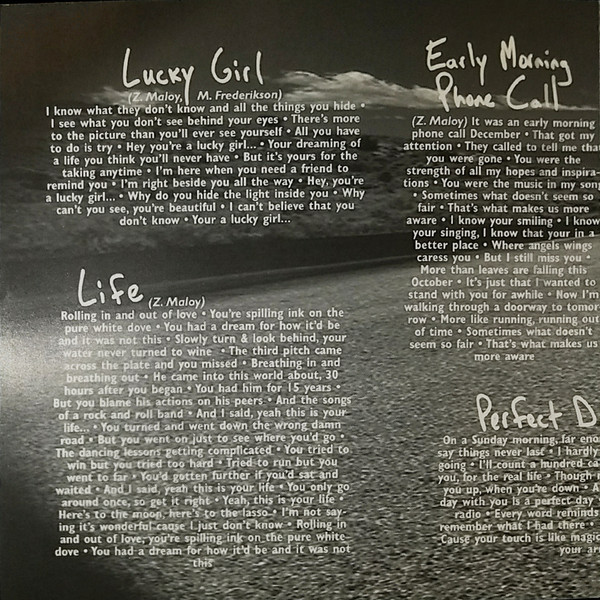 Lucky Girl
(Z. Maloy, M. Frederikson)
I know what they don't know and all the things you hide •
I see what you don't see behind your eyes • There's more
to the picture than you'll ever see yourself • All you have
to do is try • Hey you're a lucky girl... • Your dreaming of
a life you think you'll never have • But it's yours for the
taking anytime • I'm here when you need a friend to
remind you • I'm right beside you all the way • Hey, you're
a lucky girl... • Why do you hide the light inside you • Why
can't you see, you're beautiful • I can't believe that you
don't know • Your a lucky girl...
Life (Z. Maloy)
Rolling in and out of love • You're spilling ink on the
pure white dove • You had a dream for how it'd be
and it was not this • Slowly turn & look behind, your
water never turned to wine • The third pitch came
across the plate and you missed • Breathing in and
breathing out • He came into this world about, 30
hours after you began • You had him for 15 years •
But you blame his actions on his peers • And the songs
of a rock and roll band • And I said, yeah this is your
life... • You turned and went down the wrong damn
road • But you went on just to see where you'd go •
The dancing lessons getting complicated • You tried to
win but you tried too hard • Tried to run but you
went to far • You'd gotten further if you'd sat and
waited • And I said, yeah this is your life • You only go
around once, so get it right • Yeah, this is your life •
Here's to the moon, here's to the lasso • I'm not say-
ing it's wonderful cause I just don't know • Rolling in
and out of love, you're spilling ink on the pure white
dove • You had a dream for how it'd be and it was not
this
Early Morning
Phone Call
(Z. Maloy) It was an early morning
phone call December • That got my
attention • They called to tell me that
you were gone • You were the
strength of all my hopes and inspira-
tions • You were the music in my song
• Sometimes what doesn't seem so
fair • That's what makes us more
aware • I know your smiling • I know
your singing, I know that your in a
better place • Where angels wings
caress you • But I still miss you •
More than leaves are falling this
October • It's just that I wanted to
stand with you for awhile • Now I'm
walking through a doorway to tomor-
row • More like running, running out
of time • Sometimes what doesn't
seem so fair • That's what makes us
more aware
Perfect D
On a Sunday morning, far eno
say things never last • I hardly
going • I'll count a hundred ca
you, for the real life • Though
you up, when you're down • A
day with you is a perfect day
radio • Every word reminds
remember what I had there •
Cause your touch is like magic
your ar